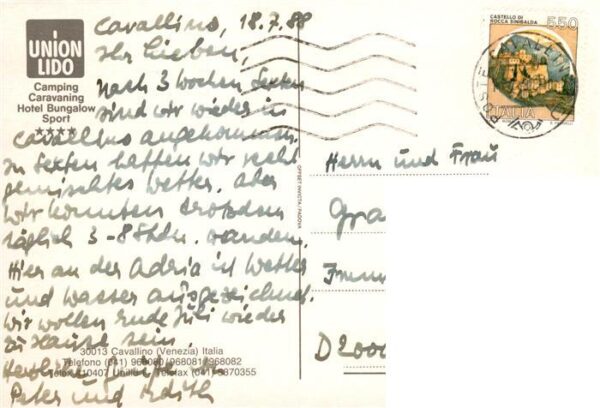 UNION
LIDO
Camping
Caravaning
Hotel Bungalow
Sport
★★★★
Cavallino, 18.7.88
Ihr Lieben,
nach 3 Wochen Sexten
sind wir wieder in
Cavallino angekommen.
In Sexten hatten wir recht
gemischtes Wetter. Aber
wir konnten trotzdem
täglich 3-8 Stdn. wandern.
Hier an der Adria ist Wetter
und Wasser ausgezeichnet.
Wir wollen Ende Juli wieder
zu Hause sein.
30013 Cavallino (Venezia) Italia
Telefono (041) 968080/968081/968082
Telex 410407 Telefax (041) 5370355
Herzliche Grüße
Peter und Edith
OFFSET INVICTA - PADOVA
CASTELLO DI
ROCCA SINIBALDA
550
ITALIA
Herrn und Frau
Gra
D 2000